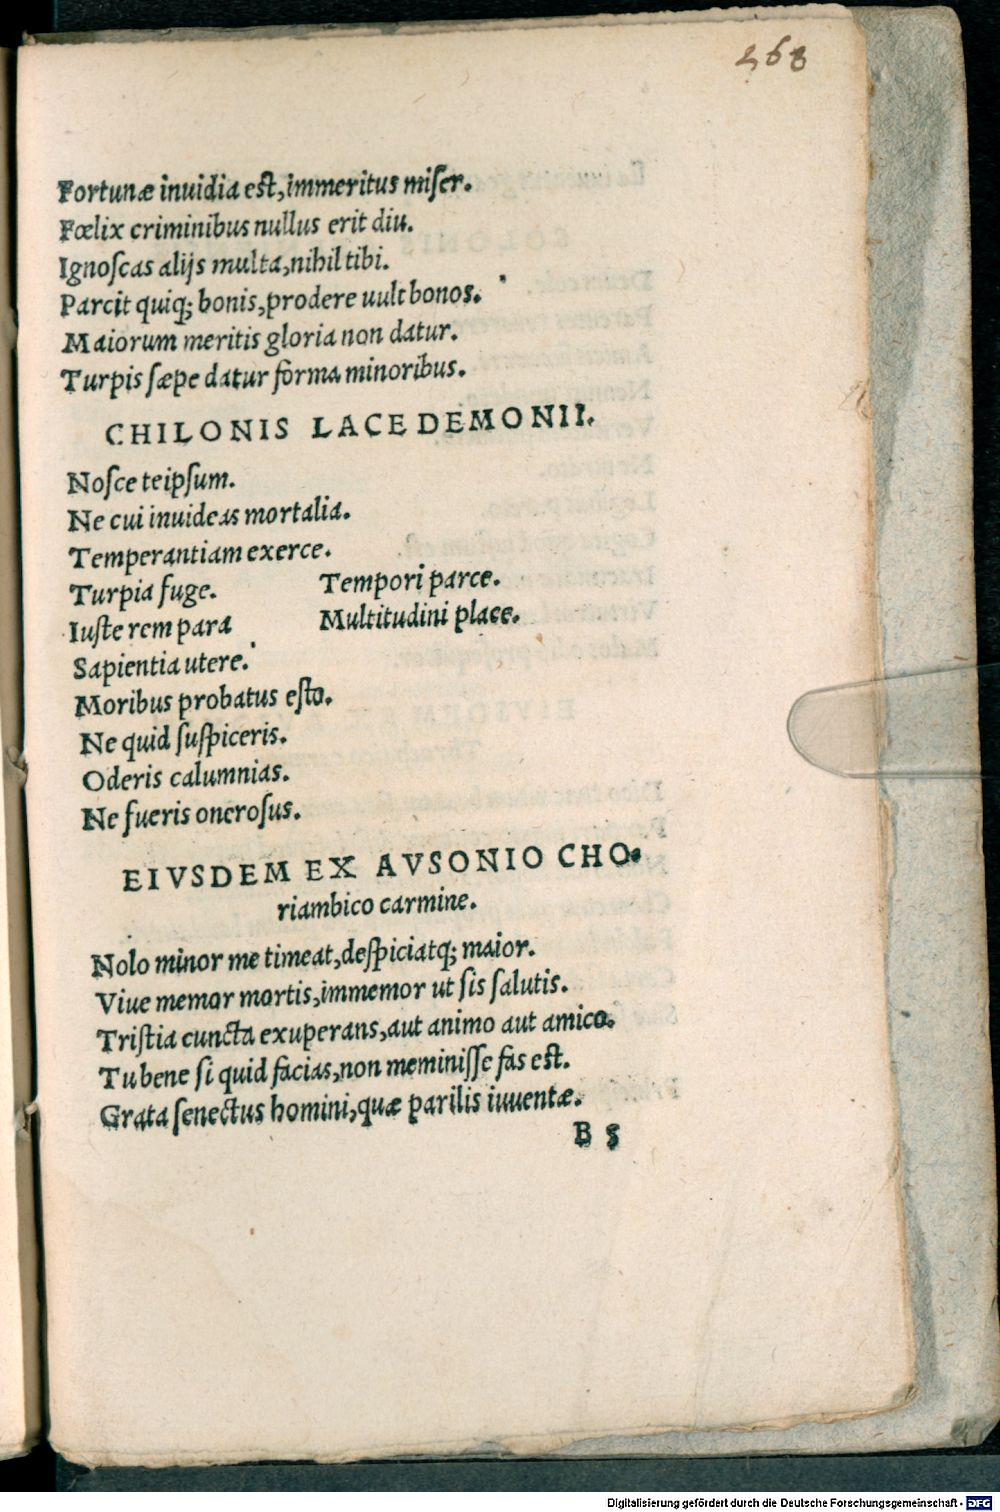 268
Fortunæ inuidia est, immeritus miser.
Fœlix criminibus nullus erit diu.
Ignoscas alijs multa, nihil tibi.
Parcit quiq; bonis, prodere uult bonos.
Maiorum meritis gloria non datur.
Turpis sæpe datur forma minoribus.
CHILONIS LACEDEMONII.
Nosce teipsum.
Ne cui inuideas mortalia.
Temperantiam exerce.
Turpia fuge. Tempori parce.
Iuste rem para Multitudini place.
Sapientia utere.
Moribus probatus esto.
Ne quid suspiceris.
Oderis calumnias.
Ne fueris onerosus.
EIVSDEM EX AVSONIO CHO-
riambico carmine.
Nolo minor me timeat, despiciatq; maior.
Viue memor mortis, immemor ut sis salutis.
Tristia cuncta exuperans, aut animo aut amico.
Tu bene si quid facias, non meminisse fas est.
Grata senectus homini, quæ parilis iuuentæ.
B 5
Digitalisierung gefördert durch die Deutsche Forschungsgemeinschaft - DFG